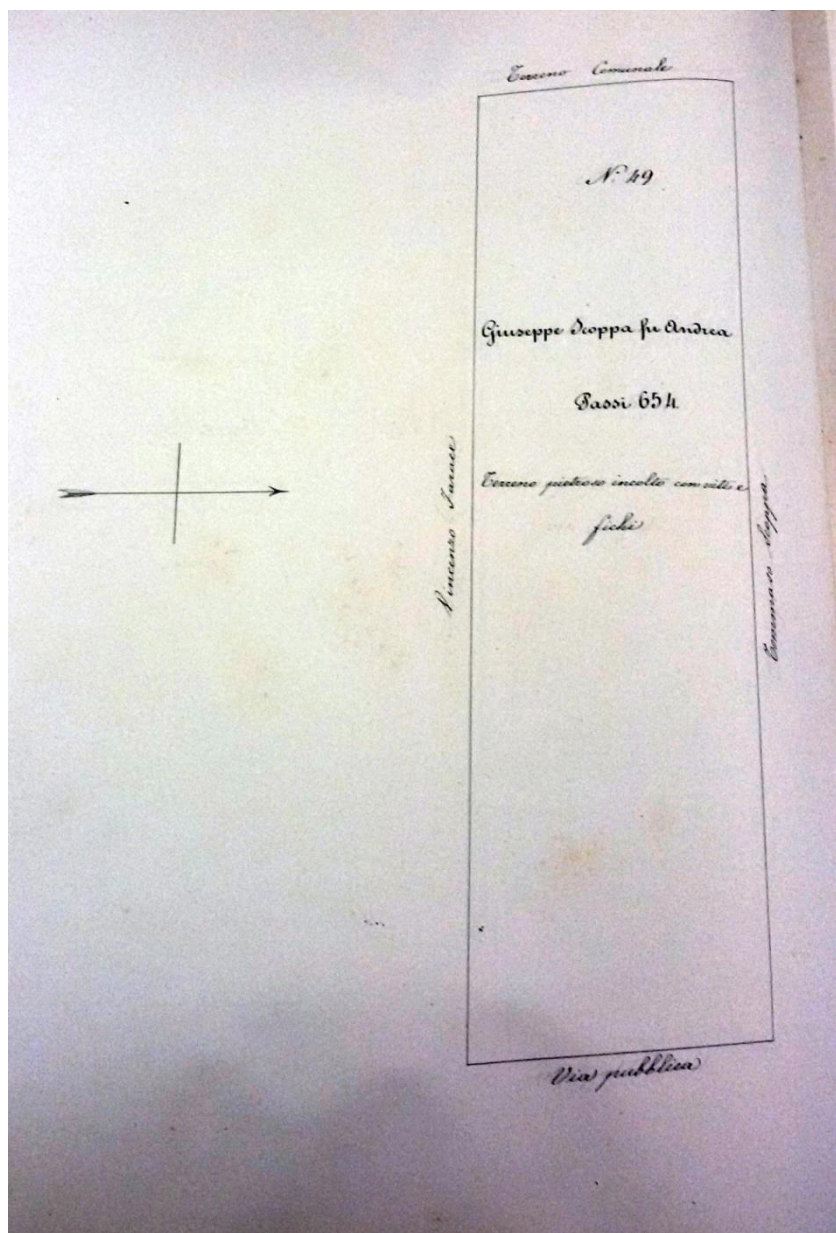 Terreno Comunale
N.º 49
Giuseppe Scoppa fu Andrea
Passi 654
Terreno pietroso incolto con viti e
fichi
Vincenzo
Tommaso Scoppa
Via pubblica